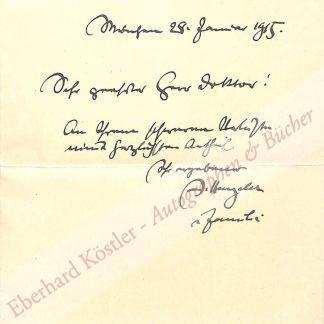 München 28. Januar 1915.
Sehr geehrter Herr Doktor!
An Ihrem schweren Verluste
nimmt herzlichsten Antheil
Ihr ergebener
u Familie
Eberhard Köstler - Autographen & Bücher